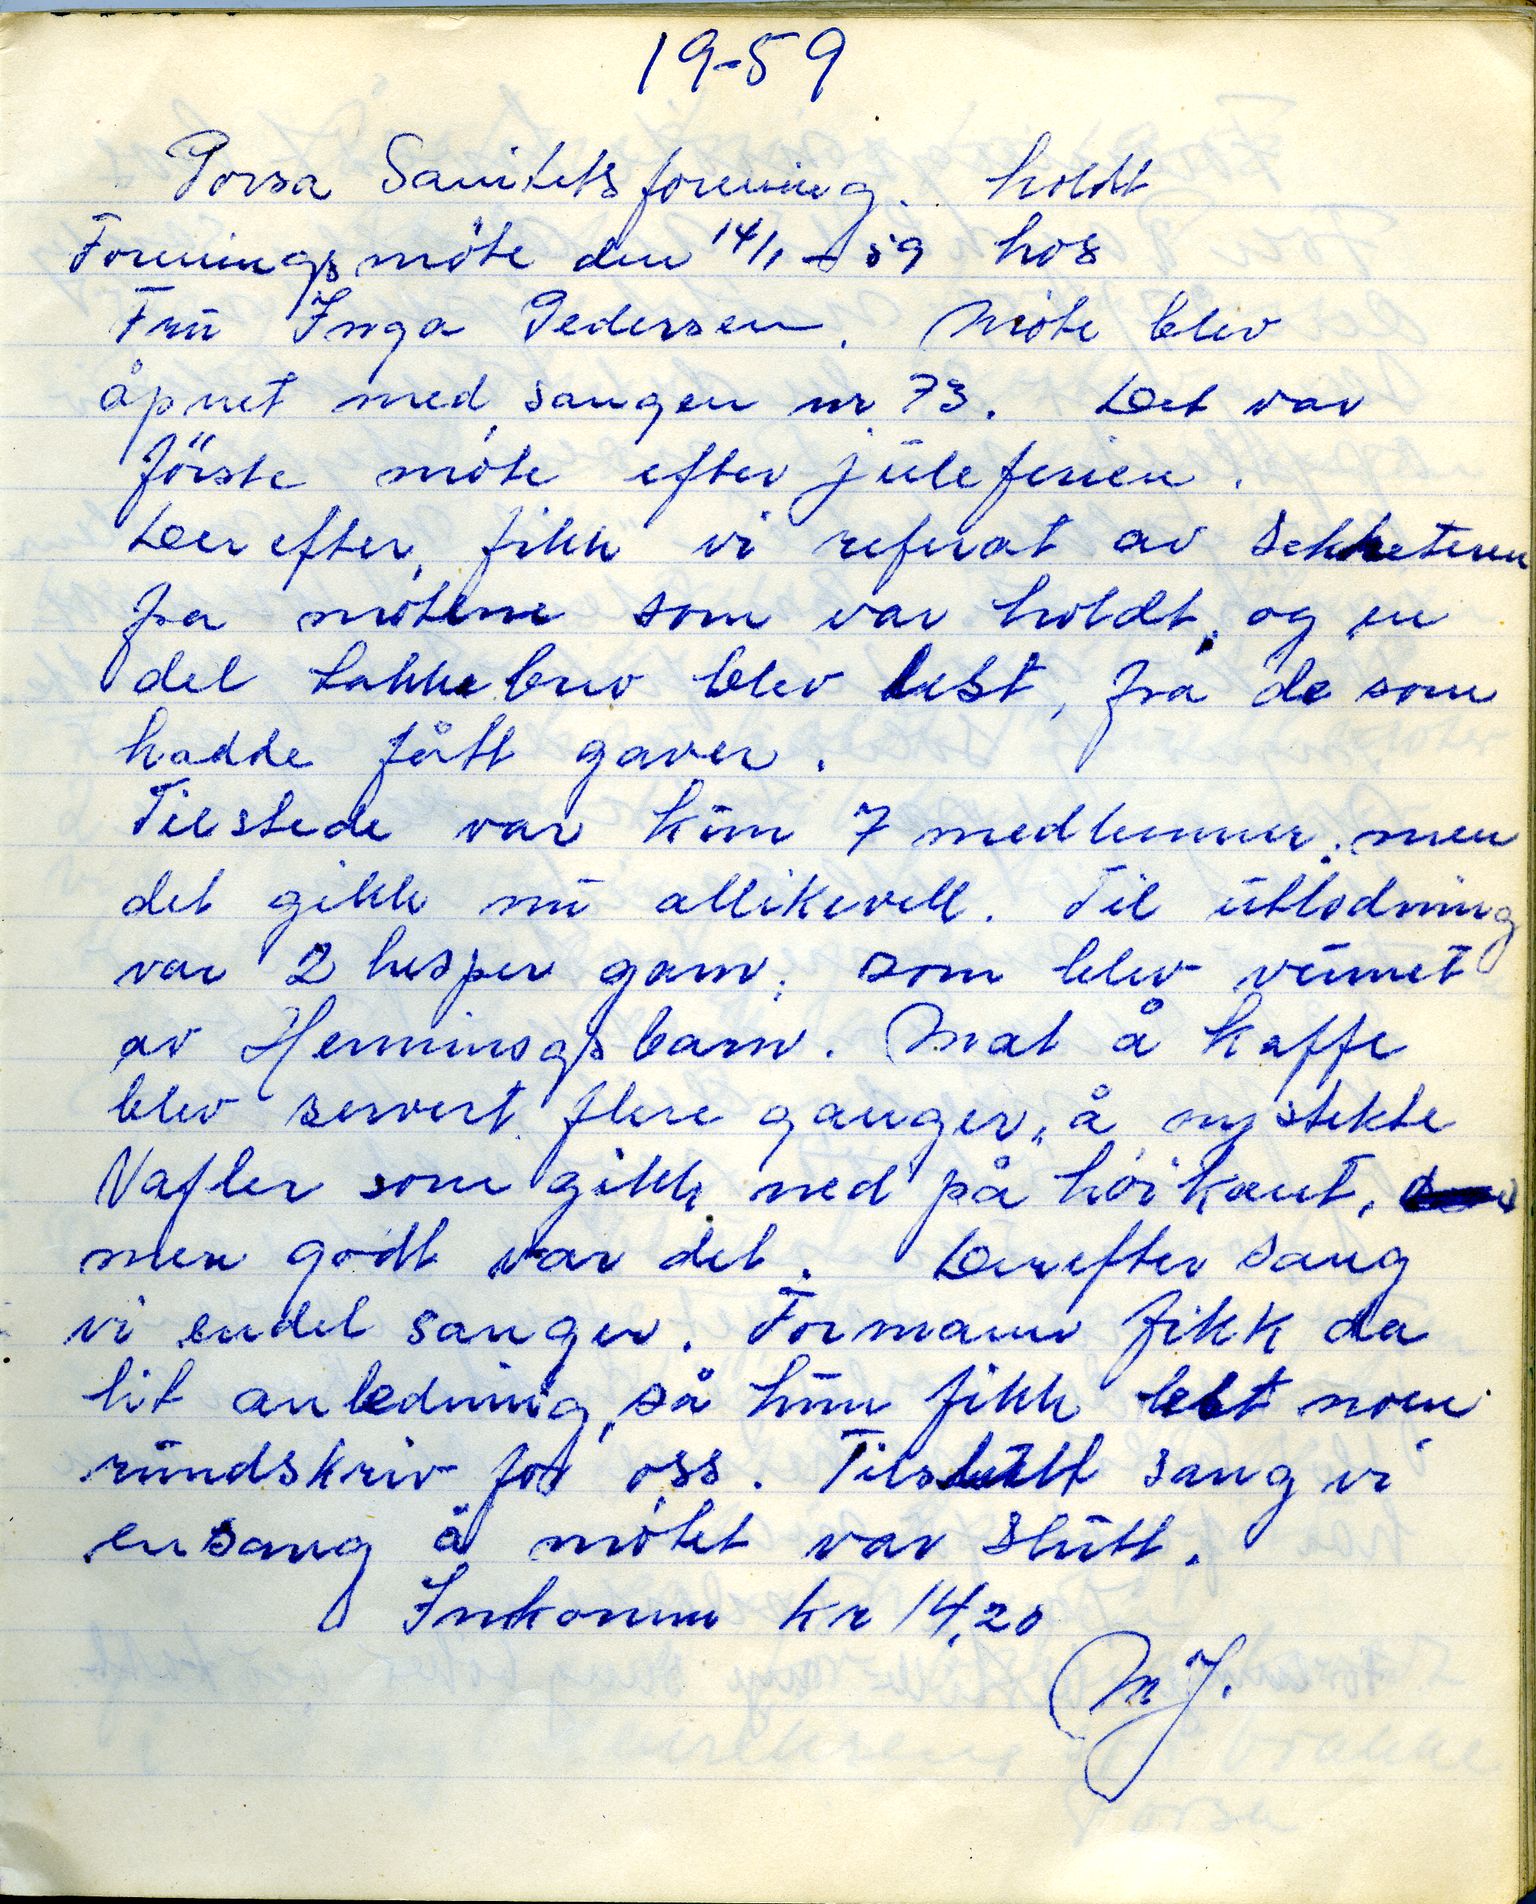 19-59
Porsa Sanitetsforening. holdt
Foreningsmöte den 14/1-59 hos
Frü Inga Pedersen. Möte blev
åpnet med sangen nr. 73. Det var
förste möte efter jüleferien.
Derefter, fikk vi referat av Sekreteren
fra mötene som var holdt, og en
del takkebrev blev lest, fra de som
hadde fått gaver.
Tilstede var kün 7 medlemmer. men
det gikk nü allikevell. Til ütlodning
var 2 hesper garn, som blev vünnet
av Henningsgsbarn. Mat å kaffe
blev servert flere ganger, å nystekte
Vafler som gikk ned på höikant,
men godt var det. Derefter sang
vi endel sanger. Formann fikk da
lit anledning, så hün fikk lest noen
ründskriv for oss. Tilslütt sang vi
en sang å mötet var slütt.
Inkomme kr 14,20
M J.